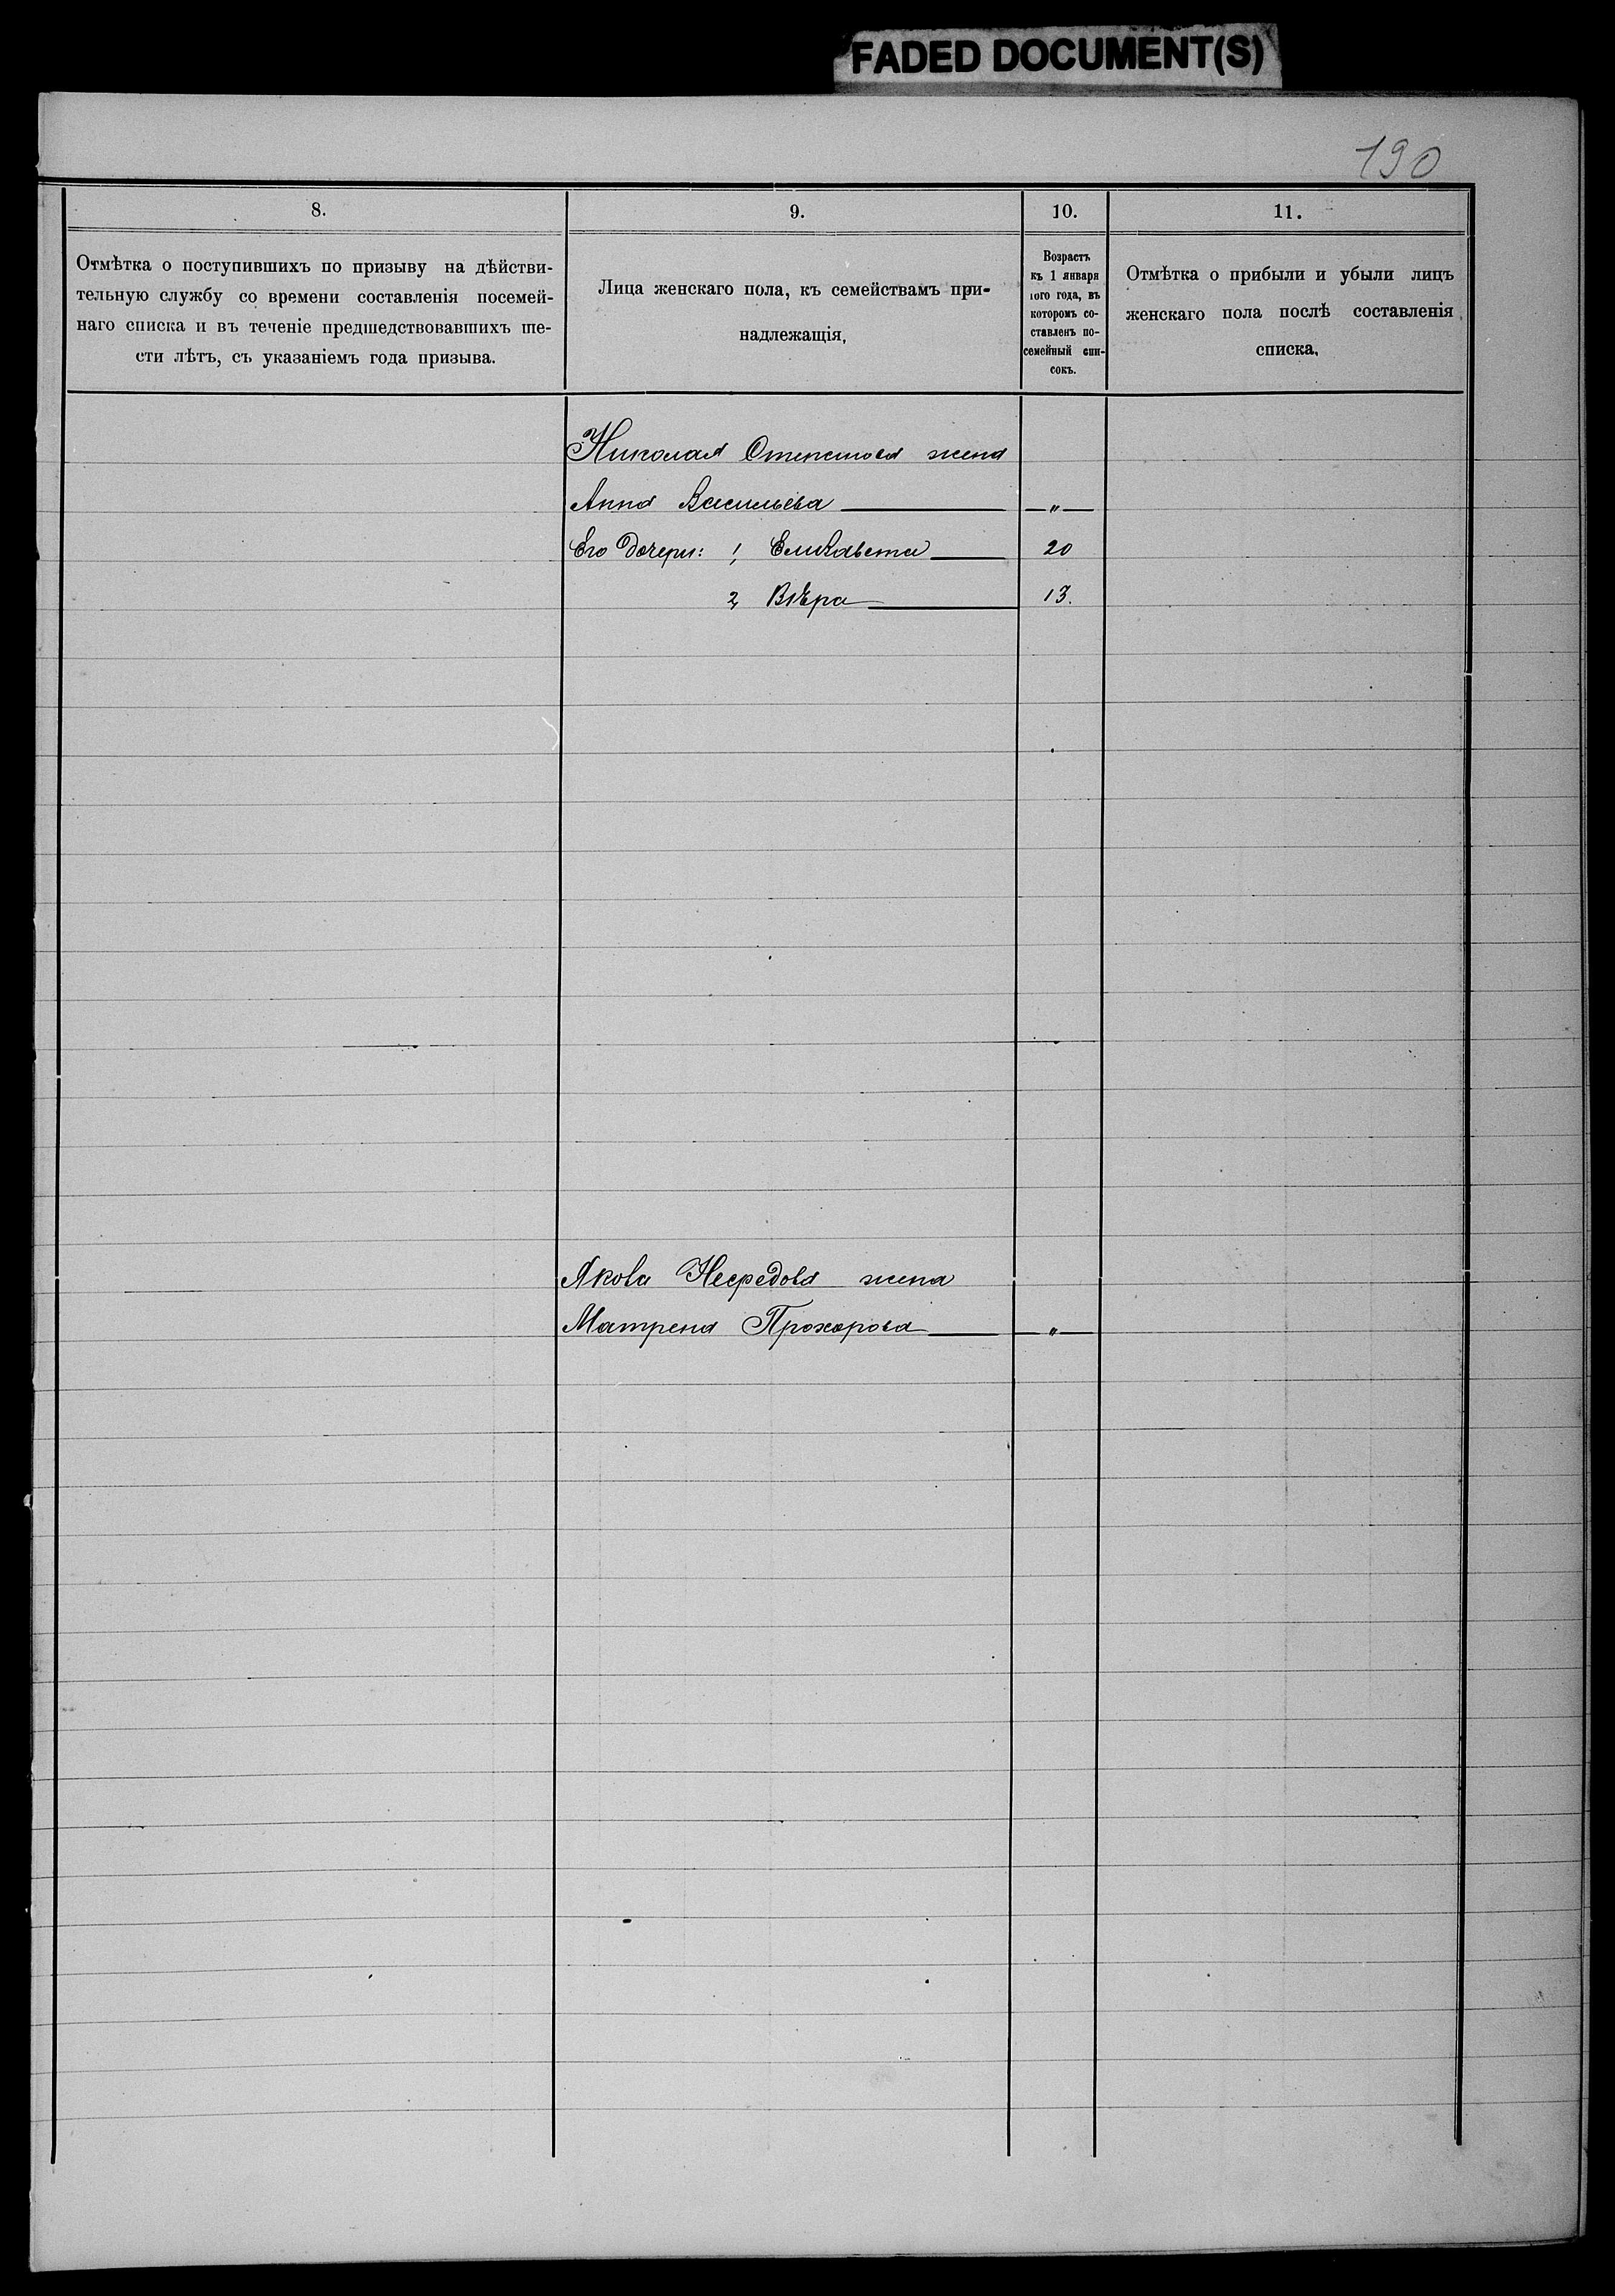 FADED DOCUMENT(S)
190
8.
9.
10.
11.
Отмѣтка о поступившихъ по призыву на дѣйстви-
тельную службу со времени составленія посемей-
наго списка и въ теченіе предшедствовавшихъ ше-
сти лѣтъ, съ указаніемъ года призыва.
Лица женскаго пола, къ семействамъ при-
надлежащія,
Возрастъ
къ 1 января
того года, въ
которомъ со-
ставленъ по-
семейный спи-
сокъ.
Отмѣтка о прибыли и убыли лицъ
женскаго пола послѣ составленія
списка,
Николая жена
Анна Васильева — „ —
Его дочери: 1, Елизавета 20
2, Вѣра 13.
Якова жена
Матрена Прохорова — „ —